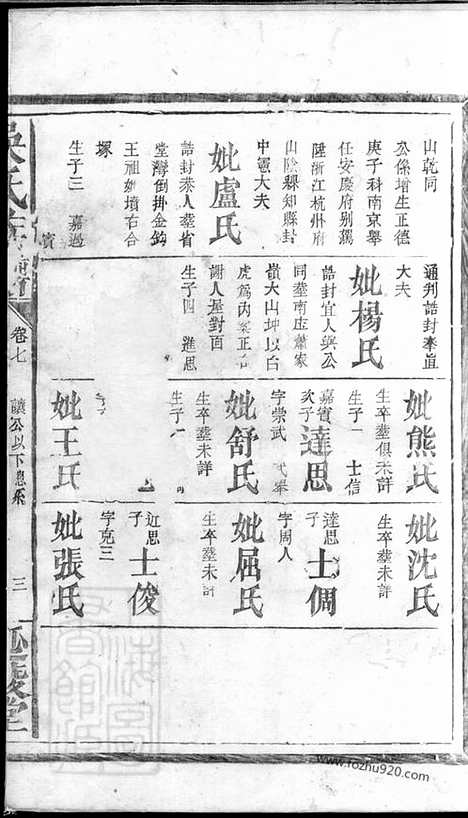 山乾同
公係增生正德
庚子科南京舉
任安慶府别駕
陞浙江杭州府
山陰縣知縣封
中憲大夫
妣盧氏
誥封恭人塟省
堂灣倒掛金鈎
王祖妣墳右合
塚
生子三 嘉過
賓
通判誥封奉直
大夫
妣楊氏
誥封宜人與公
同塟南庄蕭家
嶺大山坤以白
虎為內案正合
謝人屋對面
生子四 進思
妣熊氏
生卒塟俱未詳
生子一 士信
達思
嘉賓
次子
字崇武
妣舒氏
生卒塟未詳
生子一
妣王氏
妣沈氏
生卒塟未詳
士倜
達思
子
字周人
妣屈氏
生卒塟未詳
士俊
近思
子
字克三
妣張氏
吳氏
卷七
讓公以下息系
三
www.fozhu920.com